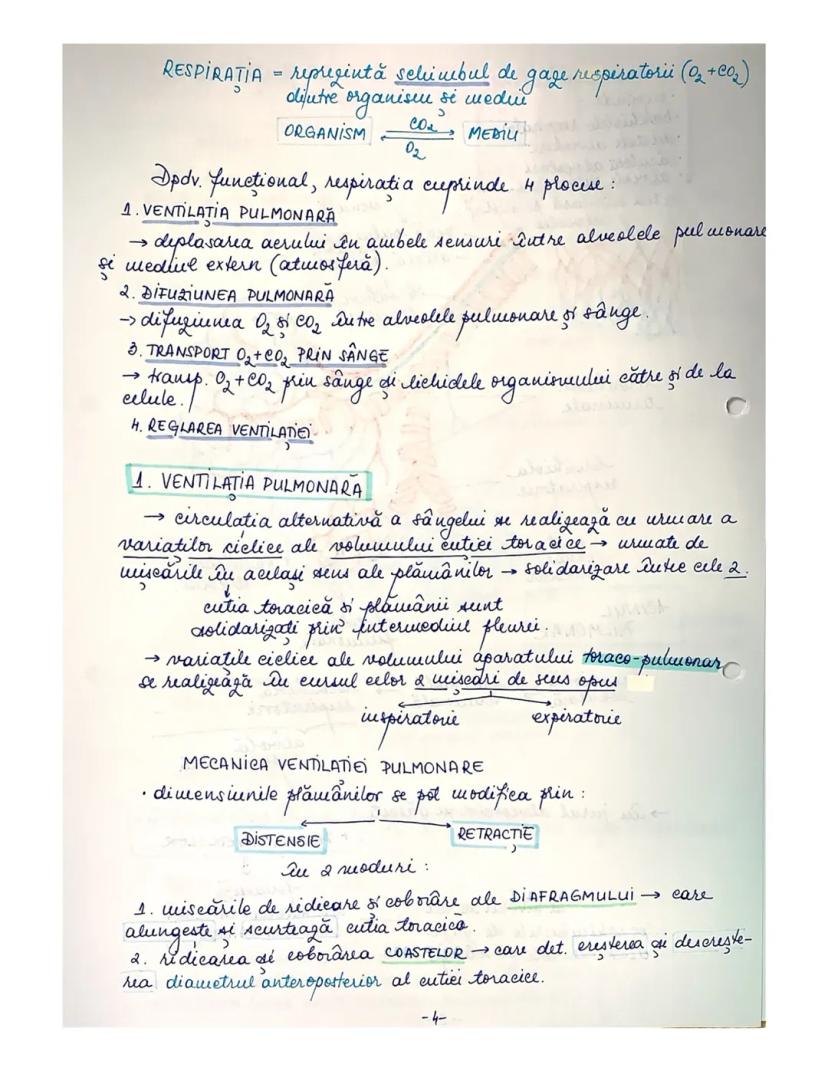 RESPIRAȚIA = reprezintă schimbul de gaze respiratorii (O₂+CO₂)
dintre organism și mediu
ORGANISM CO₂ MEDIU
O₂
Dpdv. funcțional, respirația cuprinde 4 procese :
1. VENTILAȚIA PULMONARĂ
→ deplasarea aerului în ambele sensuri între alveolele pulmonare
și mediul extern (atmosferă).
2. DIFUZIUNEA PULMONARĂ
→ difuziunea O₂ și CO₂ între alveolele pulmonare și sânge.
3. TRANSPORT O₂+CO₂ PRIN SÂNGE
→ transp. O₂+CO₂ prin sânge și lichidele organismului către și de la
celule.
4. REGLAREA VENTILAȚIEI
1. VENTILAȚIA PULMONARĂ
→ circulația alternativă a sângelui se realizează cu urmare a
variaților ciclice ale volumului cutiei toracice → urmate de
mișcările în același sens ale plămânilor → solidarizare între cele 2.
↓
cutia toracică și plămânii sunt
solidarizați prin intermediul pleurei.
→ variațile ciclice ale volumului aparatului toraco-pulmonar
se realizează în cursul celor 2 mișcări de sens opus
inspiratorie expiratorie
MECANICA VENTILAȚIEI PULMONARE
• dimensiunile plămânilor se pot modifica prin :
DISTENSIE RETRACȚIE
în 2 moduri :
1. mișcările de ridicare și coborâre ale DIAFRAGMULUI → care
alungește și scurtează cutia toracică.
2. ridicarea și coborârea COASTELOR → care det. creșterea și descrește-
rea diametrul anteroposterior al cutiei toracice.
-4-